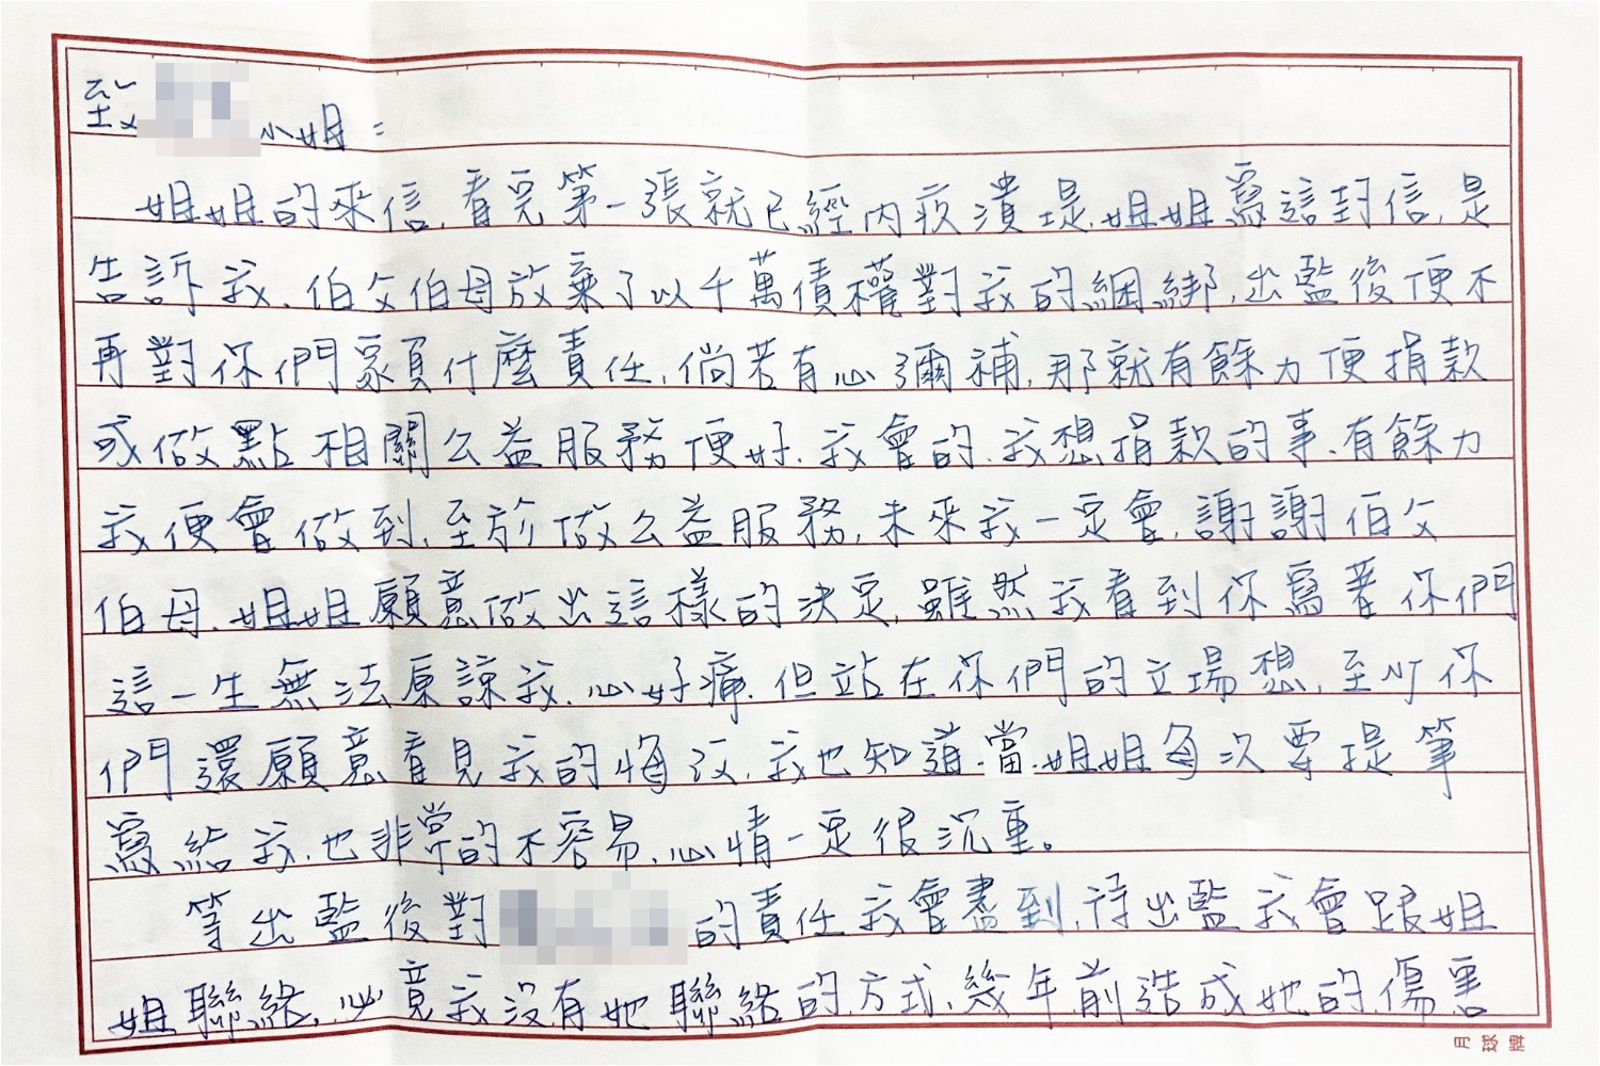 致 小姐：
姐姐的來信，看完第一張就已經內疚潰堤，姐姐寫這封信，是
告訴我，伯父伯母放棄了以千萬債權對我的綑綁，出監後便不
再對你們家負什麼責任，倘若有心彌補，那就有餘力便捐款
或做點相關公益服務便好，我會的，我想捐款的事，有餘力
我便會做到，至於做公益服務，未來我一定會，謝謝伯父
伯母、姐姐願意做出這樣的決定，雖然我看到你寫著你們
這一生無法原諒我，心好痛，但站在你們的立場想，至少你
們還願意看見我的悔改，我也知道，當姐姐每次要提筆
寫給我，也非常的不容易，心情一定很沉重。
等出監後對 的責任我會盡到，待出監我會跟姐
姐聯絡，必竟我沒有她聯絡的方式，幾年前造成她的傷害